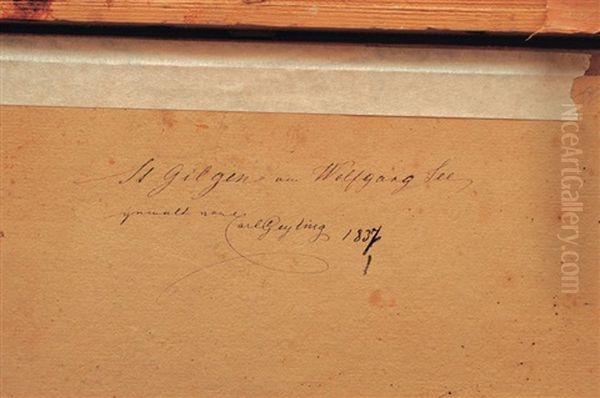 St Gilgen am Wolfgang See
gemalt von
Carl Geyling 1837
NiceArtGallery.com